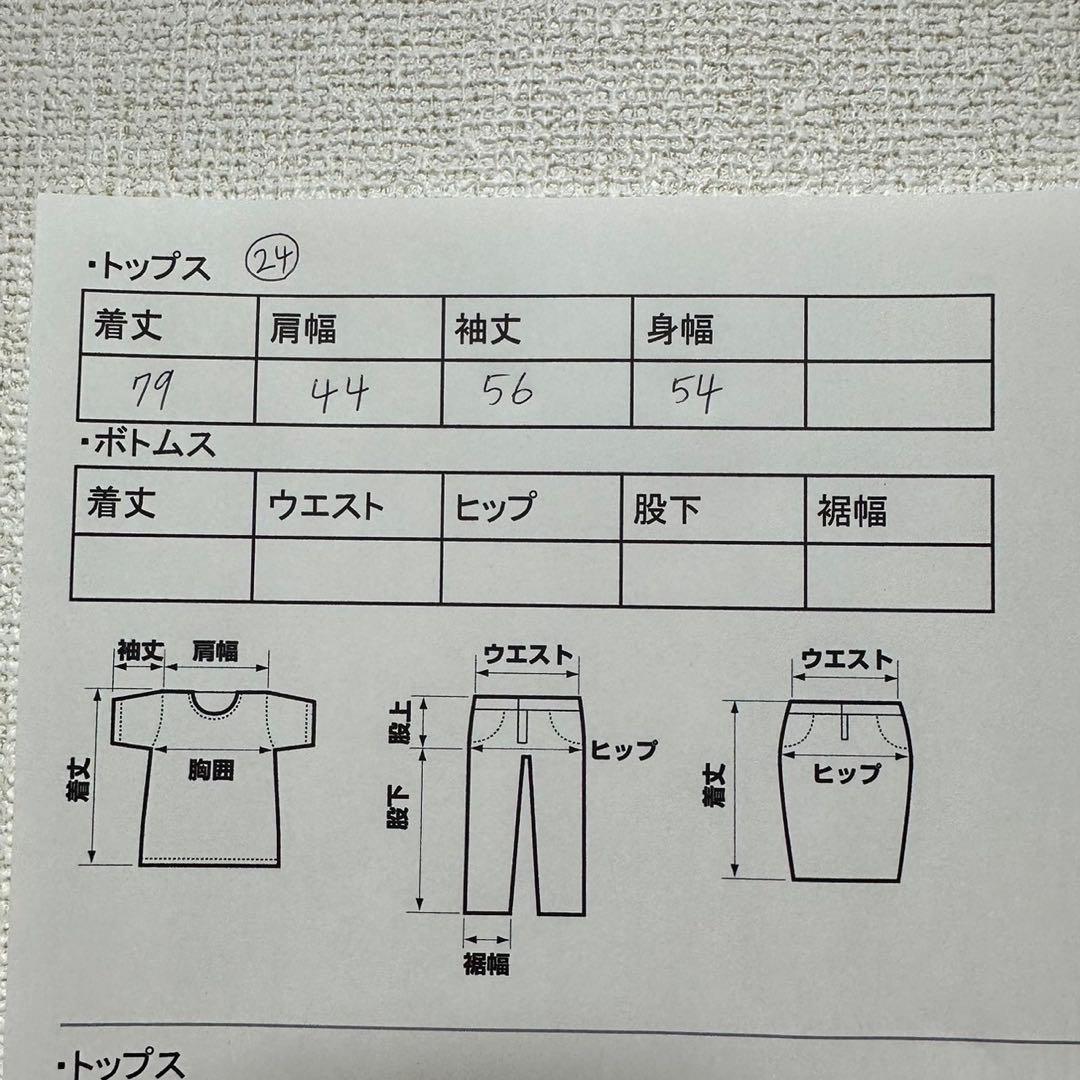 ・トップス ㉔
着丈 肩幅 袖丈 身幅
79 44 56 54
・ボトムス
着丈 ウエスト ヒップ 股下 裾幅
袖丈 肩幅
着丈
胸囲
ウエスト
股上
ヒップ
股下
裾幅
ウエスト
着丈
ヒップ
・トップス